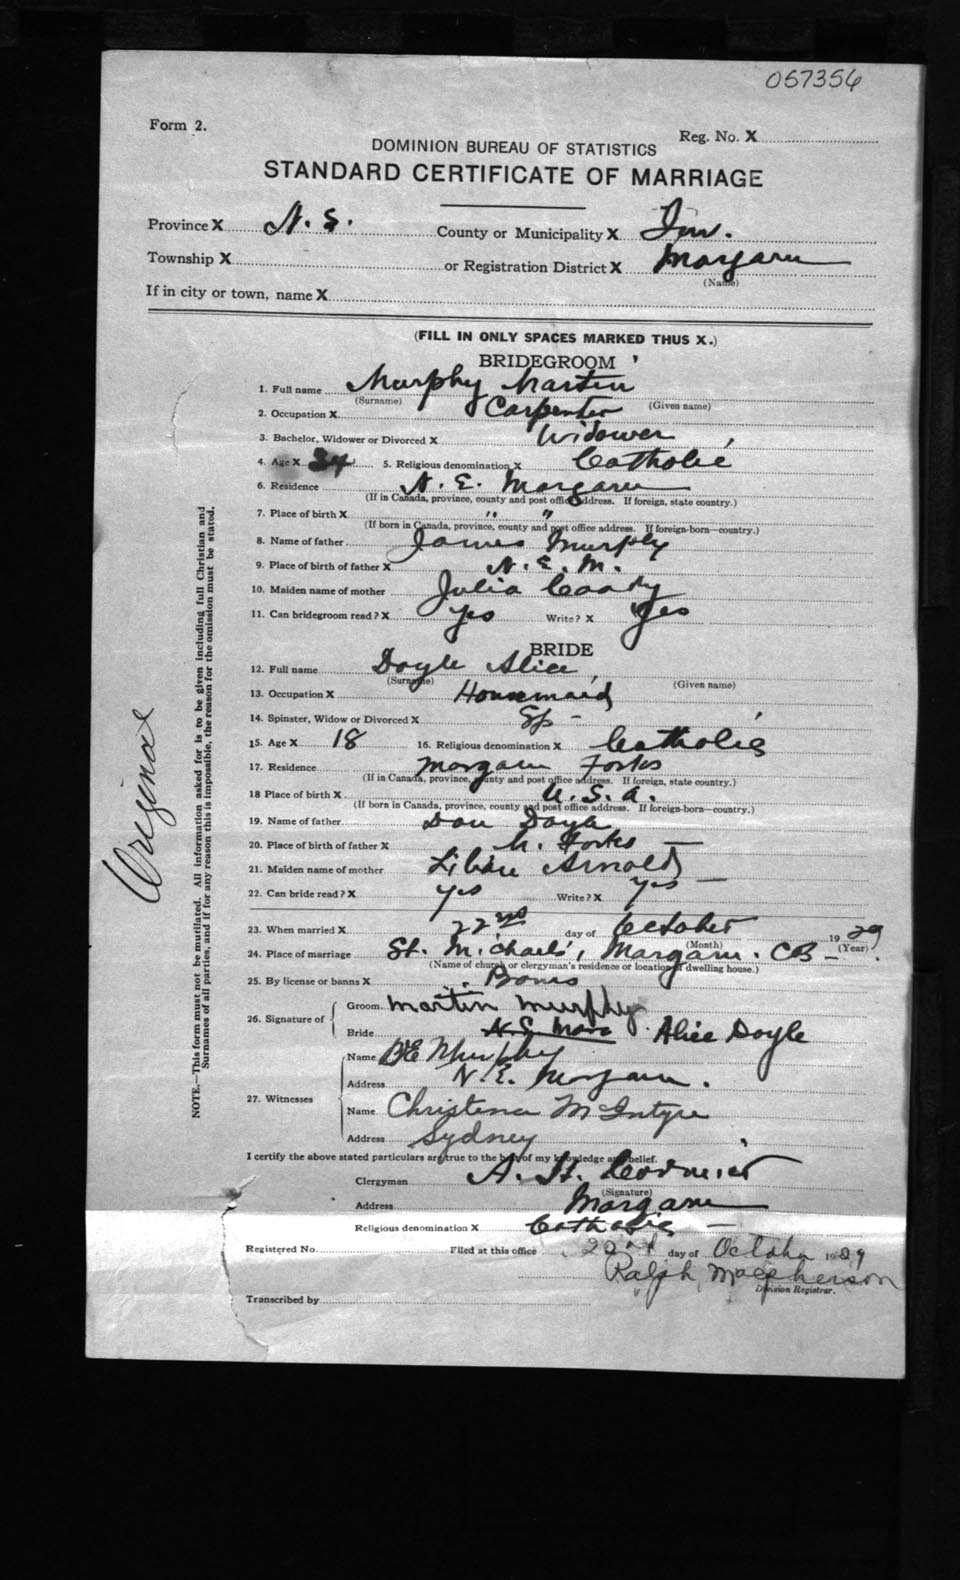 057356
Form 2.
Reg. No. X
DOMINION BUREAU OF STATISTICS
STANDARD CERTIFICATE OF MARRIAGE
Province X N. S. County or Municipality X Inv.
Township X or Registration District X Margaree
(Name)
If in city or town, name X
(FILL IN ONLY SPACES MARKED THUS X.)
BRIDEGROOM
1. Full name Murphy Martin
(Surname) (Given name)
2. Occupation X Carpenter
3. Bachelor, Widower or Divorced X Widower
4. Age X 34 5. Religious denomination X Catholic
6. Residence N. E. Margaree
(If in Canada, province, county and post office address. If foreign, state country.)
7. Place of birth X " "
(If born in Canada, province, county and post office address. If foreign-born—country.)
8. Name of father James Murphy
9. Place of birth of father X N. E. M.
10. Maiden name of mother Julia Coady
11. Can bridegroom read? X Yes Write? X Yes
BRIDE
12. Full name Doyle Alice
(Surname) (Given name)
13. Occupation X Housemaid
14. Spinster, Widow or Divorced X Sp -
15. Age X 18 16. Religious denomination X Catholic
17. Residence Margaree Forks
(If in Canada, province, county and post office address. If foreign, state country.)
18 Place of birth X U. S. A.
(If born in Canada, province, county and post office address. If foreign-born—country.)
19. Name of father Dan Doyle
20. Place of birth of father X M. Forks —
21. Maiden name of mother Arnold
22. Can bride read? X yes Write? X yes —
23. When married X 22nd day of October 1929
(Month) (Year)
24. Place of marriage St. Michael's, Margaree. CB -
(Name of church or clergyman's residence or location of dwelling house.)
25. By license or banns X Banns
26. Signature of Groom Martin Murphy
Bride Alice Doyle
27. Witnesses
Name Murphy
Address N. E. Margaree.
Name Christena McIntyre
Address Sydney
I certify the above stated particulars are true to the best of my knowledge and belief.
Clergyman A. H. Cormier
(Signature)
Address Margaree
Religious denomination X Catholic —
Registered No. Filed at this office 22nd day of October 1929
Ralph Macpherson
Division Registrar.
Transcribed by
NOTE.—This form must not be mutilated. All information asked for is to be given including full Christian and
Surnames of all parties, and if for any reason this is impossible, the reason for the omission must be stated.
Original